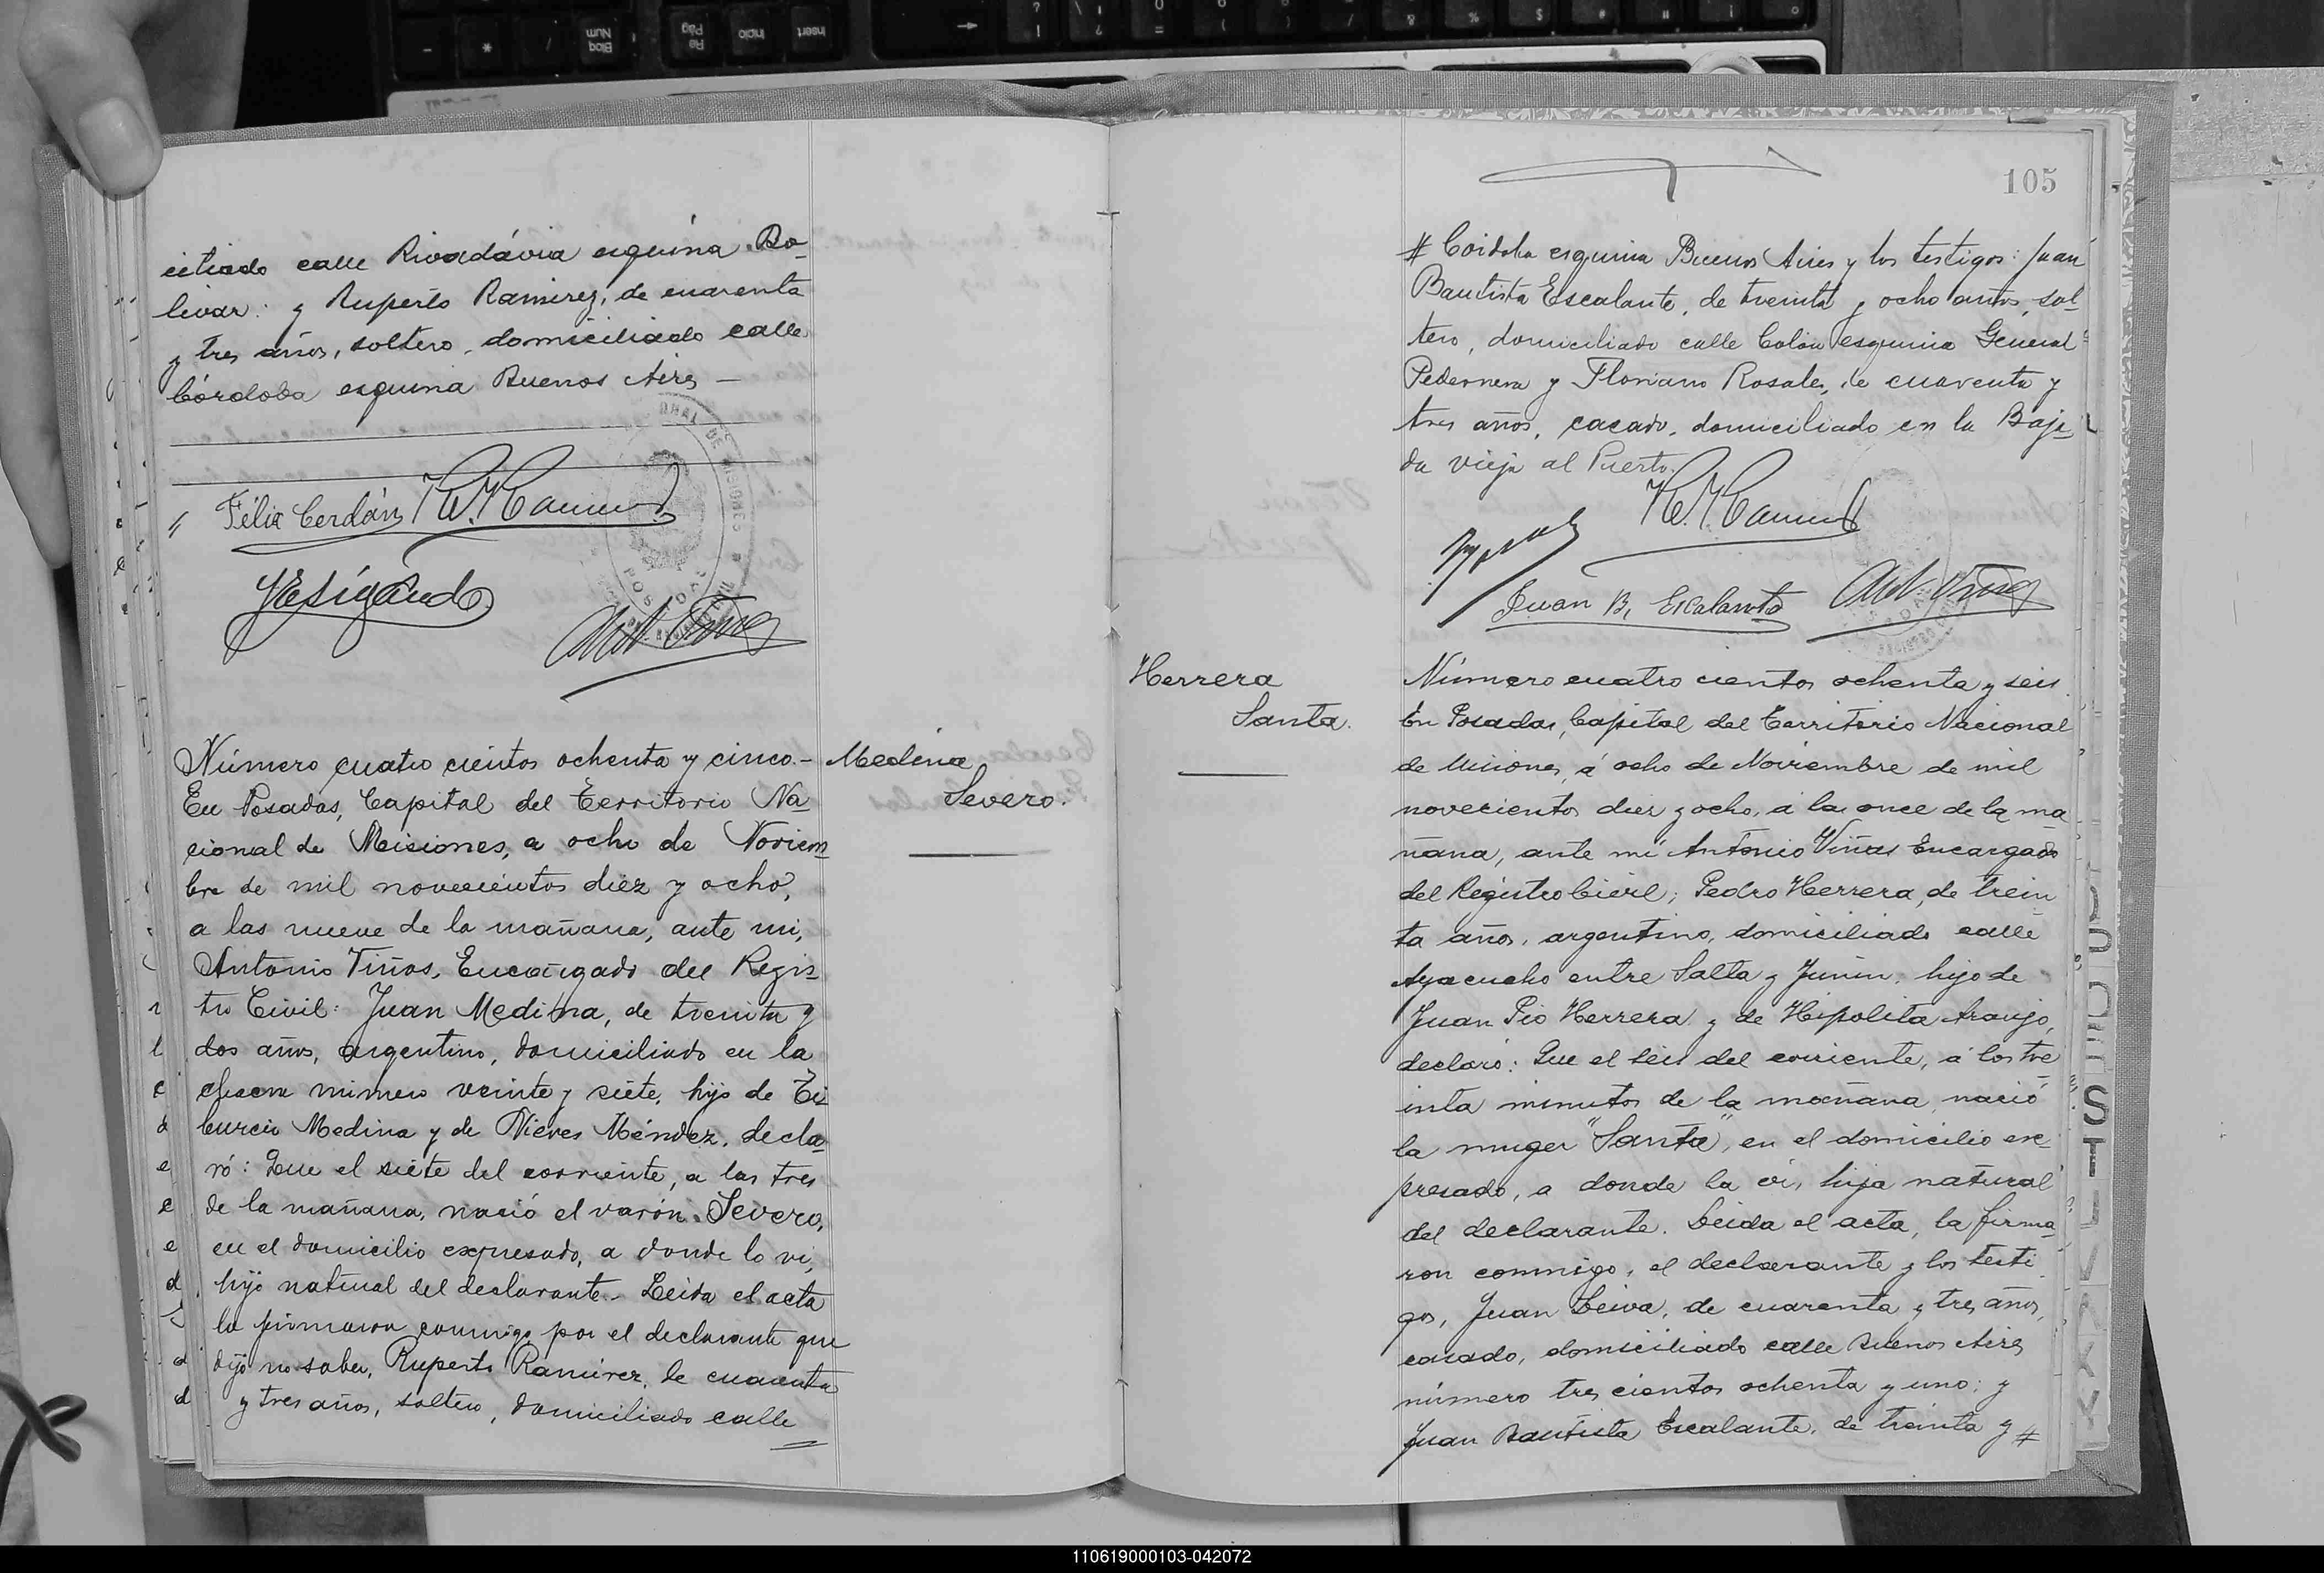 ciliado calle Rivadávia esquina Bo-
livar: y Ruperto Ramirez, de cuarenta
y tres años, soltero, domiciliado calle
Córdoba esquina Buenos Aires —
Félix Cerdán
Número cuatro cientos ochenta y cinco.-
Medina
Severo.
En Posadas, Capital del Territorio Na-
cional de Misiones, a ocho de Noviem-
bre de mil novecientos diez y ocho,
a las nueve de la mañana, ante mi,
Antonio Viñas, Encargado del Regis-
tro Civil: Juan Medina, de treinta y
dos años, argentino, domiciliado en la
chacra número veinte y siete, hijo de Ti-
burcio Medina y de Nieves Méndez, decla-
ró: Que el siete del corriente, a las tres
de la mañana, nació el varón Severo,
en el domicilio expresado, a donde lo vi,
hijo natural del declarante.- Leida el acta
la firmaron conmigo, por el declarante que
dijo no saber, Ruperto Ramirez, de cuarenta
y tres años, soltero, domiciliado calle
105
# Córdoba esquina Buenos Aires y los testigos: Juan
Bautista Escalante, de treinta y ocho años, sol-
tero, domiciliado calle Colón esquina General
Pedernera y Floriano Rosales, de cuarenta y
tres años, casado, domiciliado en la Baja-
da vieja al Puerto.
Juan B. Escalante
Herrera
Santa.
Número cuatro cientos ochenta y seis
En Posadas, Capital del Territorio Nacional
de Misiones, á ocho de Noviembre de mil
novecientos diez y ocho, á las once de la ma
ñana, ante mí Antonio Viñas Encargado
del Registro Civil; Pedro Herrera, de trein
ta años, argentino, domiciliado calle
Ayacucho entre Salta y Junin, hijo de
Juan Pio Herrera y de Hipolita Araujo,
declaró: Que el seis del corriente, á los tre
inta minutos de la mañana nació
la muger "Santa", en el domicilio ex-
presado, a donde la vi, hija natural
del declarante. Leida el acta, la firma-
ron conmigo, el declarante y los testi
gos, Juan Leiva, de cuarenta y tres años,
casado, domiciliado calle Buenos Aires
número tres cientos ochenta y uno; y
Juan Bautista Escalante, de treinta y #
110619000103-042072